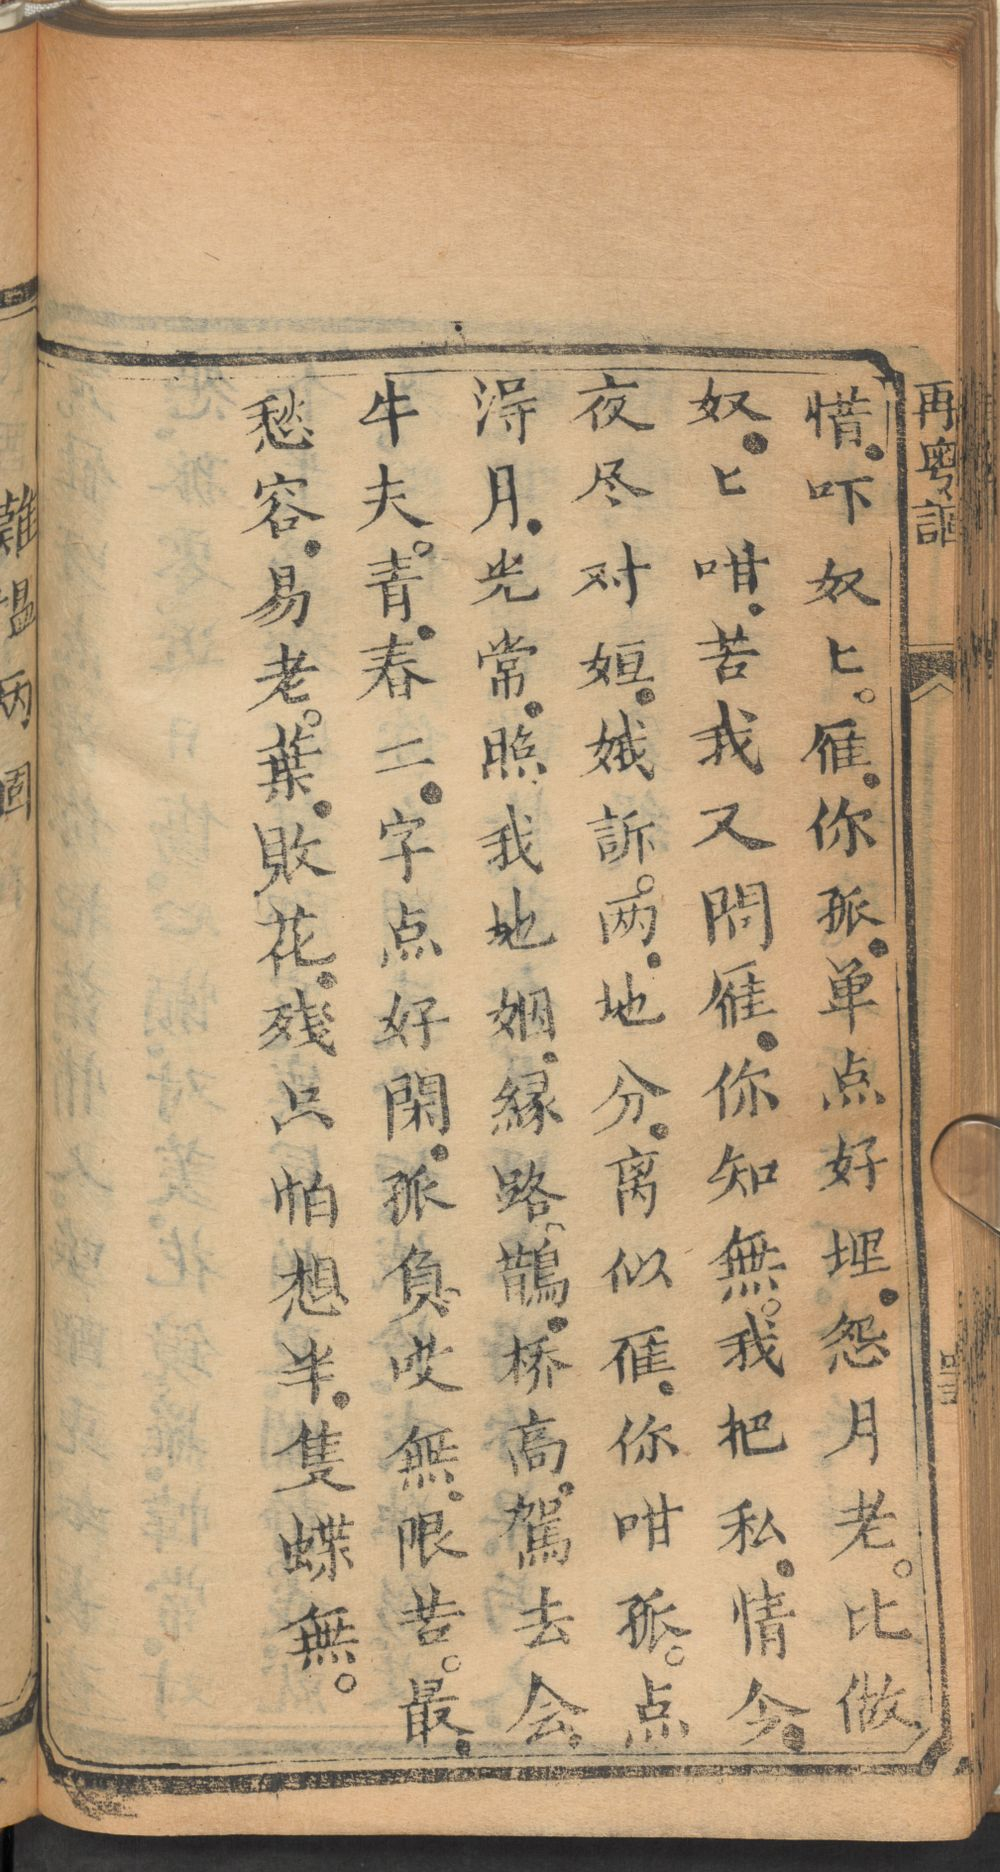 再粵謳
惜吓奴匕。雁你孤单点好埋怨月老。比做
奴匕咁苦我又問雁你知無。我把私情今
夜尽对姮娥訴。两地分离似雁你咁孤。点
淂月光常照我地姻緣路。鵲桥高駕去会
牛夫。青春二字点好閑孤負。哎無限苦。最
愁容易老。葉敗花残只怕想半隻蝶無。